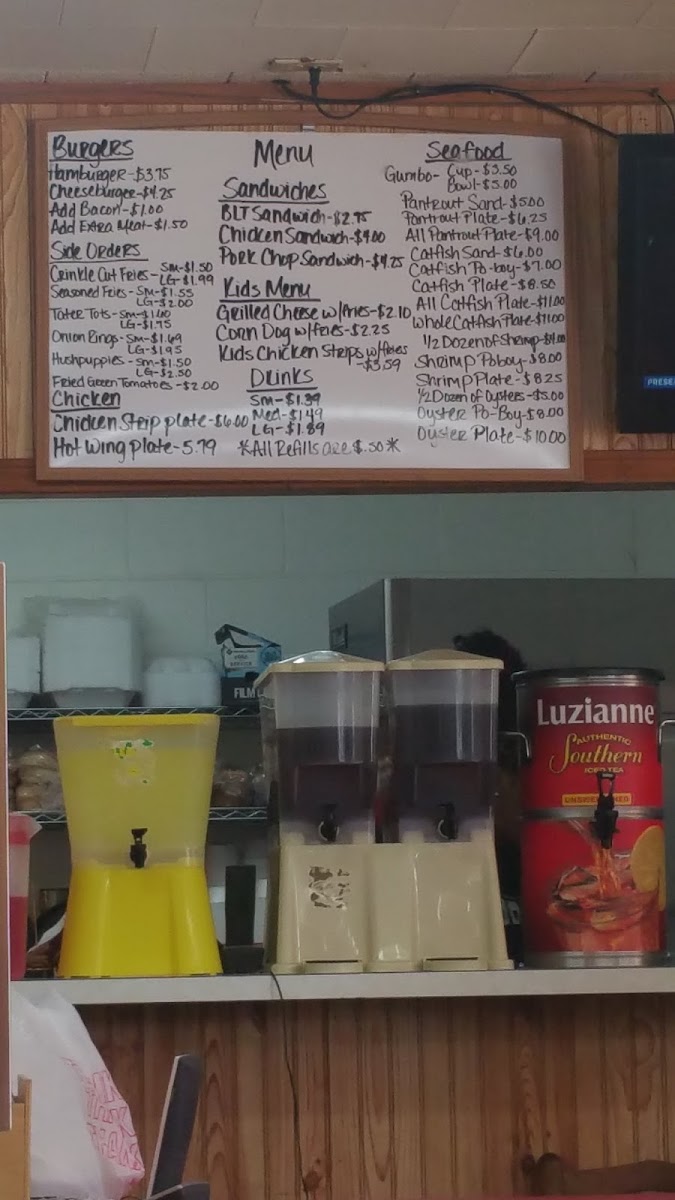 Menu
Burgers
Hamburger-$3.75
Cheeseburger-$4.25
Add Bacon-$1.00
Add Extra Meat-$1.50
Side Orders
Crinkle Cut Fries-Sm-$1.50
LG-$1.99
Seasoned Fries-Sm-$1.55
LG-$2.00
Tater Tots-Sm-$1.60
LG-$1.75
Onion Rings-Sm-$1.69
LG-$1.95
Hushpuppies-Sm-$1.50
LG-$2.50
Fried Green Tomatoes-$2.00
Chicken
Chicken Strip plate-$6.00
Hot Wing Plate-5.79
Sandwiches
BLT Sandwich-$2.75
Chicken Sandwich-$4.00
Pork Chop Sandwich-$4.25
Kids Menu
Grilled Cheese w/fries-$2.10
Corn Dog w/fries-$2.25
Kids Chicken Strips w/fries
-$3.59
Drinks
Sm-$1.39
Med-$1.49
LG-$1.89
*All Refills are $.50*
Seafood
Gumbo- Cup-$3.50
Bowl-$5.00
Pantrout Sand-$5.00
Pantrout Plate-$6.25
All Pantrout Plate-$9.00
Catfish Sand-$6.00
Catfish Po-boy-$7.00
Catfish Plate-$8.50
All Catfish Plate-$11.00
Whole Catfish Plate-$11.00
1/2 Dozen of Shrimp-
Shrimp Poboy-$8.00
Shrimp Plate-$8.25
1/2 Dozen of Oysters-$5.00
Oyster Po-Boy-$8.00
Oyster Plate-$10.00
PRESE
FILM
Luzianne
AUTHENTIC
Southern
ICED TEA